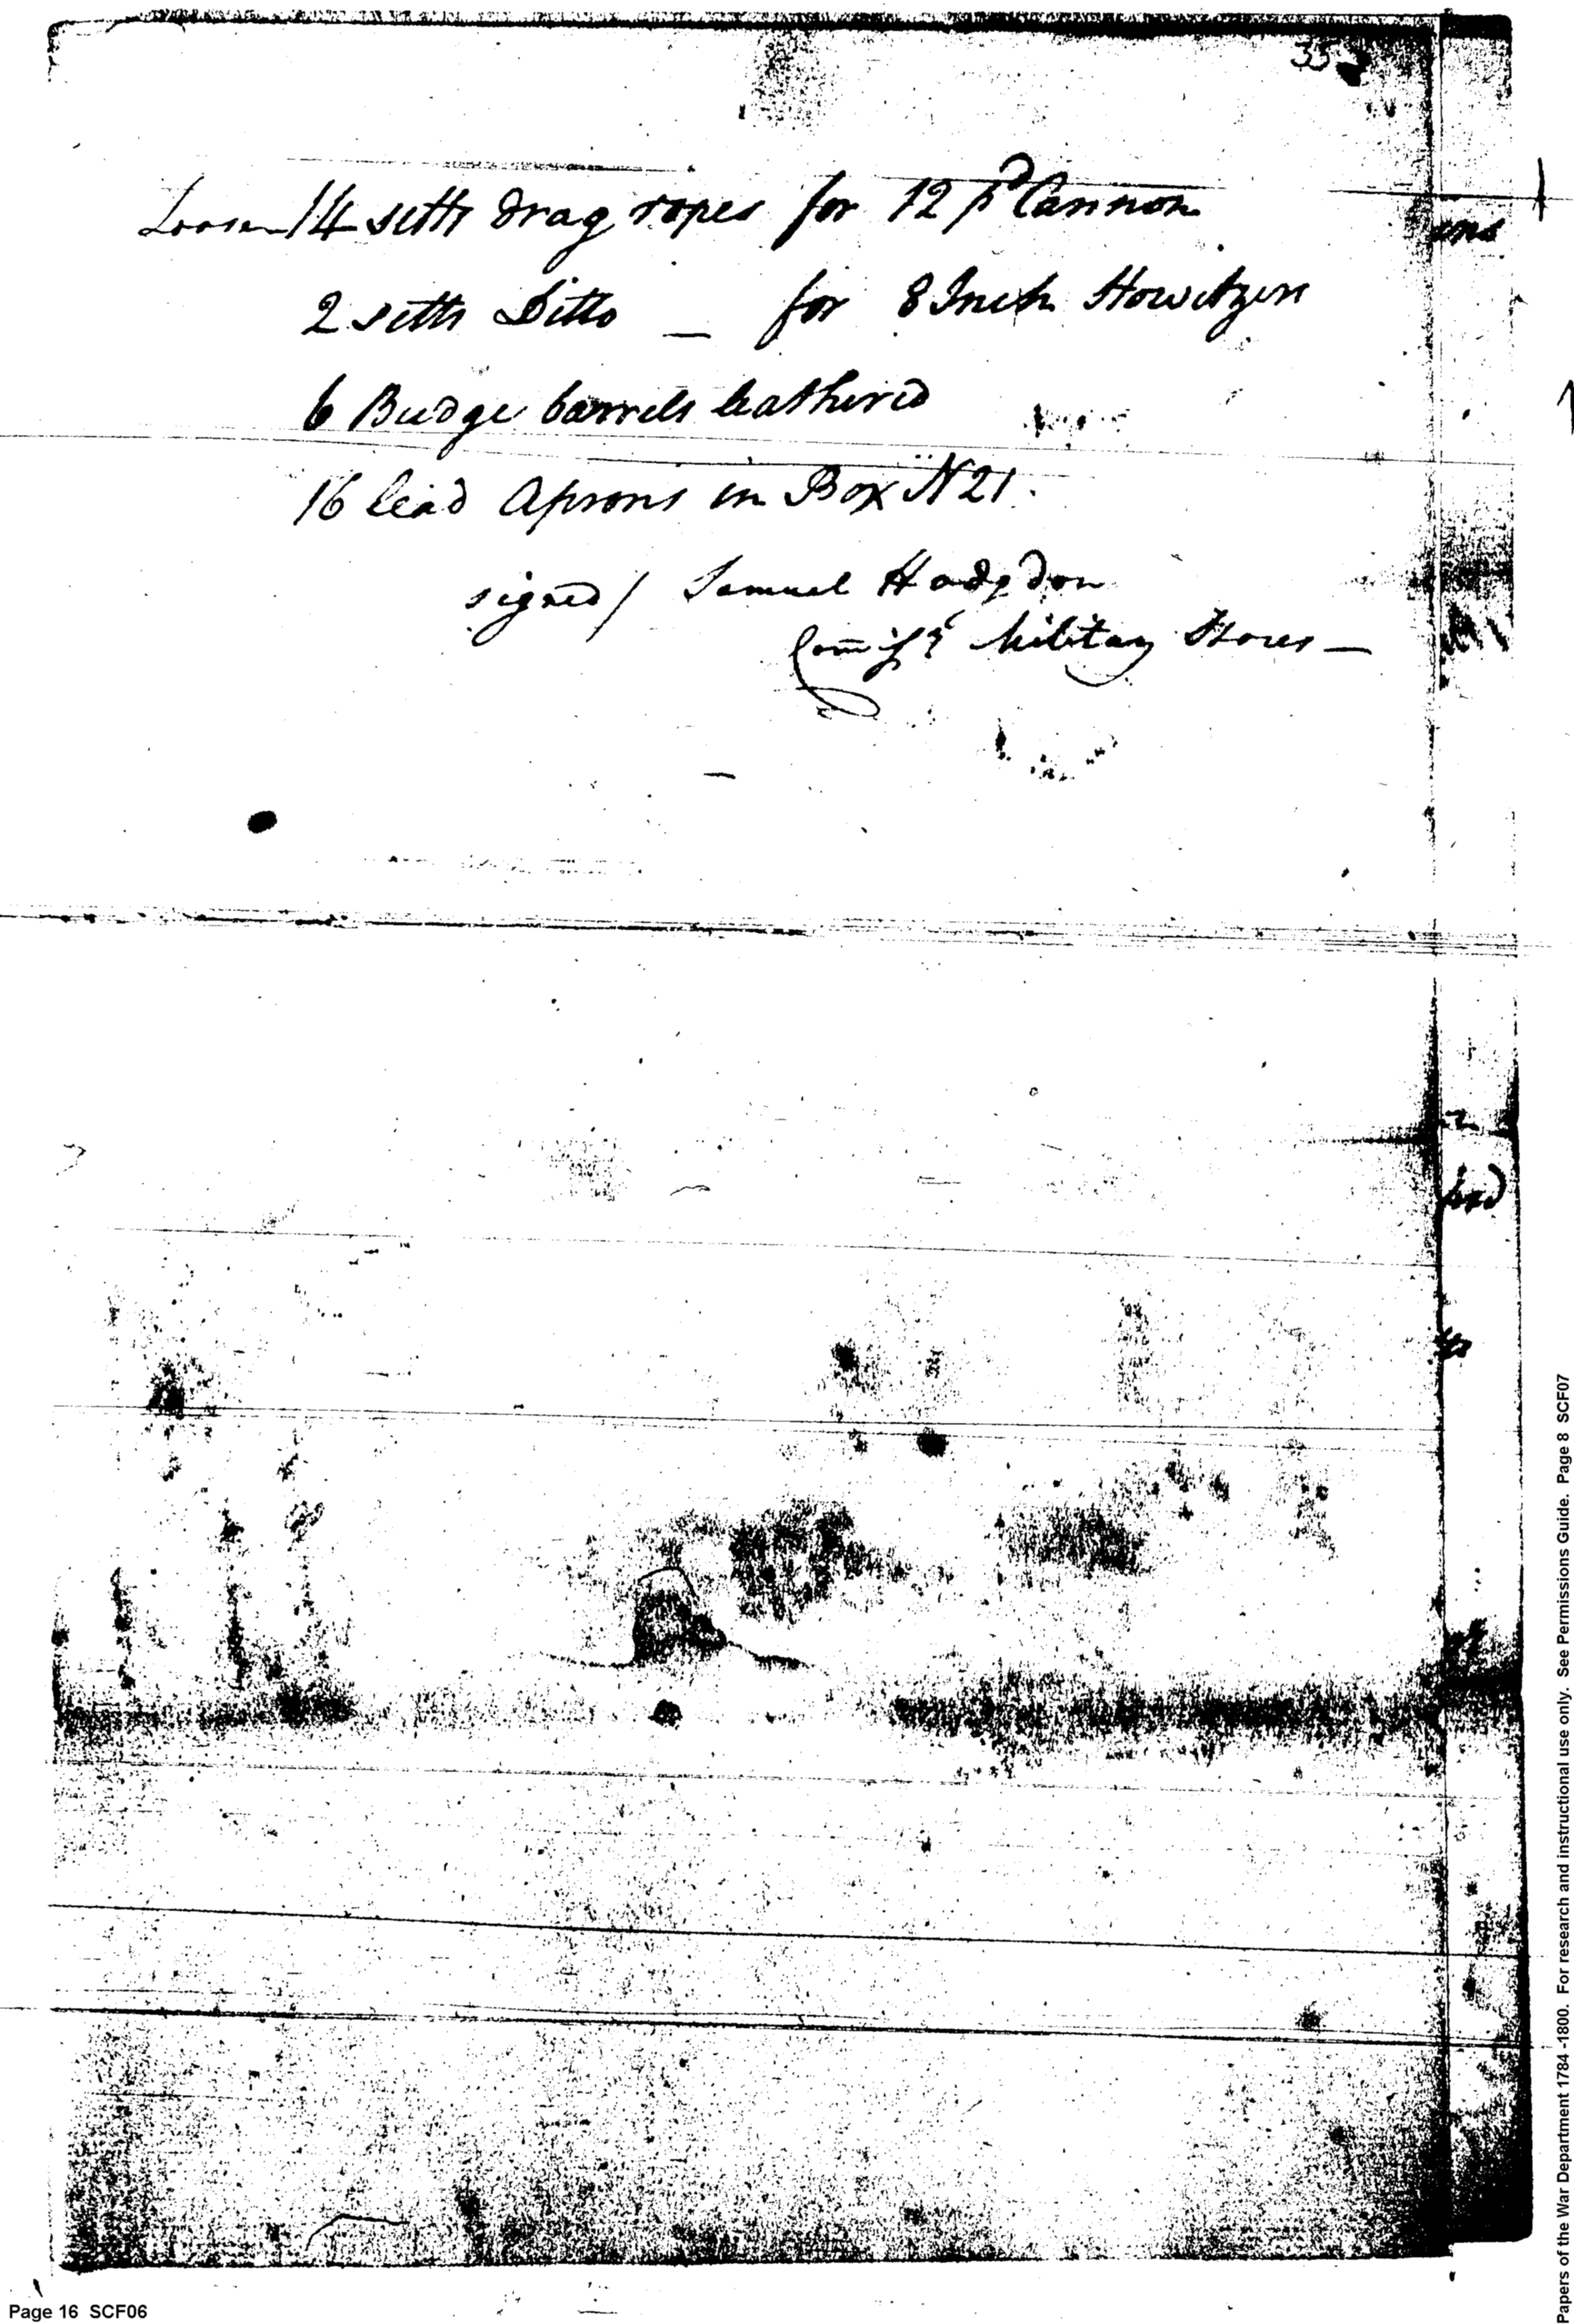 35
Loose 14 setts drag ropes for 12 pd Cannon
2 setts Ditto — for 8 Inch Howitzers
6 Budge barrels leathered
16 lead Aprons in Box N 21.
signed / Samuel Hodgdon
Commissy Military Stores —
Papers of the War Department 1784 -1800. For research and instructional use only. See Permissions Guide. Page 8 SCF07
Page 16 SCF06